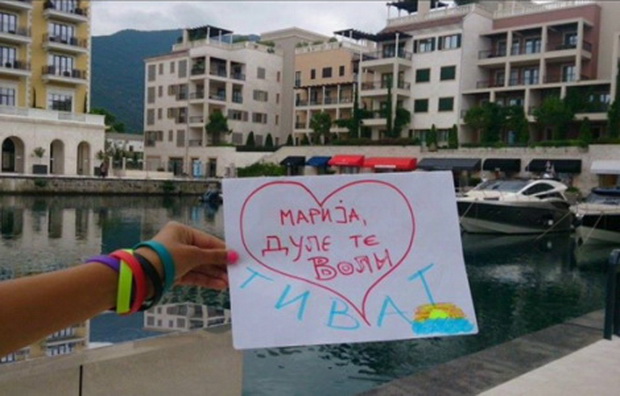 МАРИЈА,
ДУЛЕ ТЕ
ВОЛИ
ТИВАТ